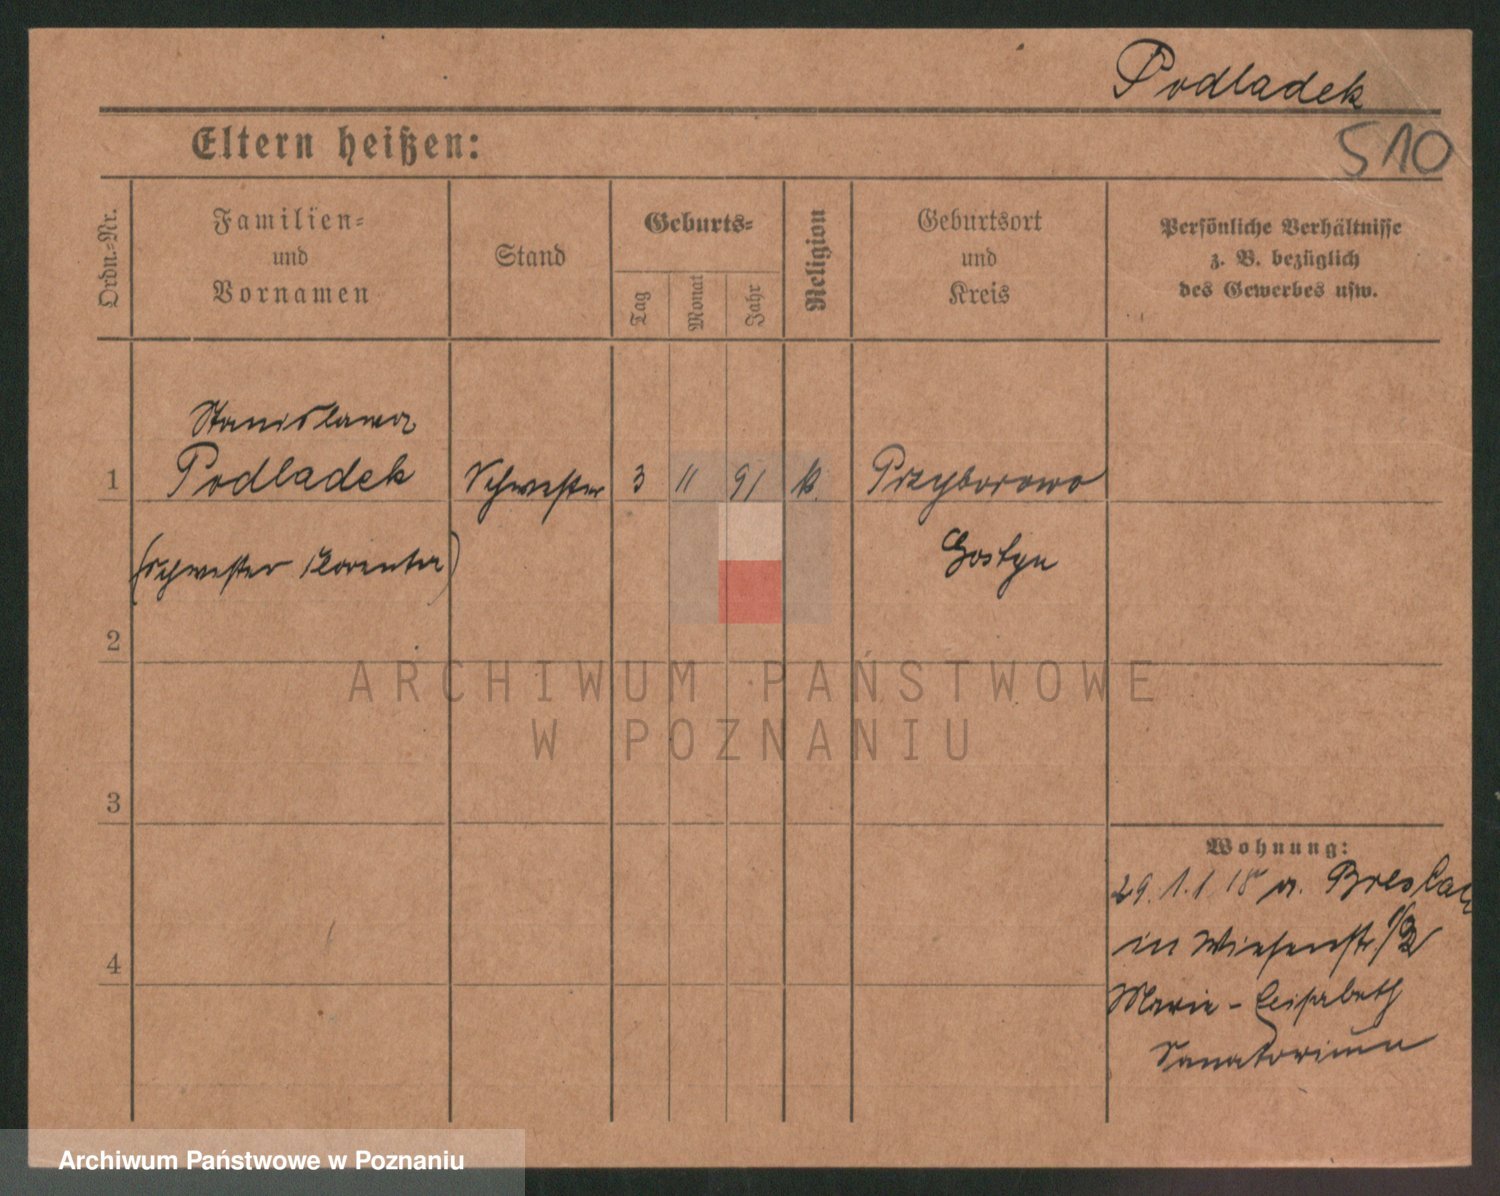 Podladek
510
Eltern heißen:
Ordn.-Nr.
Familien-
und
Vornamen
Stand
Geburts-
Tag
Monat
Jahr
Religion
Geburtsort
und
Kreis
Persönliche Verhältnisse
z. B. bezüglich
des Gewerbes usw.
Stanislawa
1 Podladek Schwester 3 11 91 k. Przyborowo
(Schwester Gostyn
2
3
4
ARCHIWUM PAŃSTWOWE
W POZNANIU
Wohnung:
29.1.18 a. Breslau
in Wiesenstr.
Marie-Elisabeth
Sanatorium
Archiwum Państwowe w Poznaniu